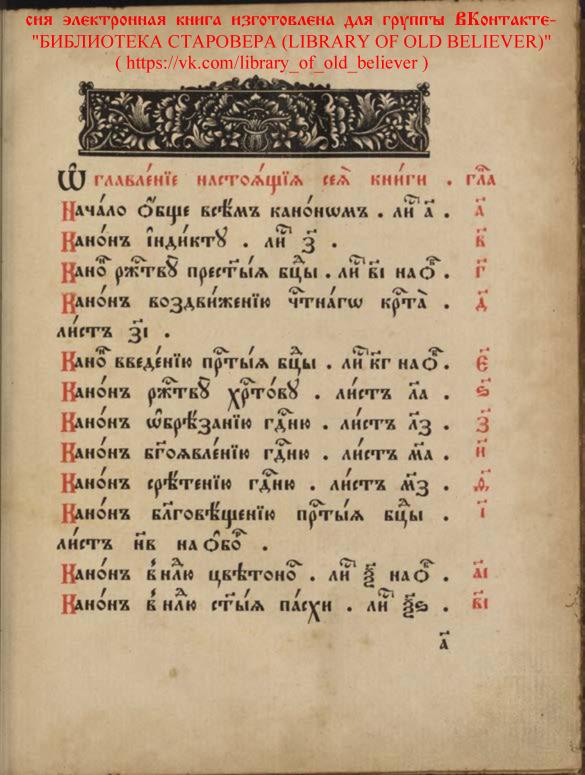 сия электронная книга изготовлена для группы ВКонтакте-
"БИБЛИОТЕКА СТАРОВЕРА (LIBRARY OF OLD BELIEVER)"
( https://vk.com/library_of_old_believer )
Ѡ҆главле́нїе настоѧ́щїѧ сеѧ̀ кни́ги . гл҃а
Нача́ло ѻ҆́бще всѣ́мъ кано́нѡмъ . ли́ⷭ҇ а҃ . а҃
Кано́нъ і҆нди́ктꙋ . ли́ⷭ҇ з҃ . в҃
Кано́ⷩ҇ рж҃твꙋ̀ прест҃ы́ѧ бц҃ы . ли́ⷭ҇ в҃і на ѻ҆ⷠ҇ . г҃
Кано́нъ воздви́женїю чⷭ҇тна́гѡ крⷭ҇та̀ . д҃
ли́стъ з҃і .
Кано́ⷩ҇ введе́нїю прⷭ҇ты́ѧ бц҃ы . ли́ⷭ҇ к҃г на ѻ҆ⷠ҇ . є҃
Кано́нъ рж҃твꙋ̀ хрⷭ҇то́вꙋ . ли́стъ л҃а . ѕ҃
Кано́нъ ѡ҆брѣ́занїю гдⷭ҇ню . ли́стъ л҃з . з҃
Кано́нъ бг҃оѧвле́нїю гдⷭ҇ню . ли́стъ м҃а . и҃
Кано́нъ срѣ́тенїю гдⷭ҇ню . ли́стъ м҃з . ѳ҃
Кано́нъ бл҃говѣ́щенїю прⷭ҇ты́ѧ бц҃ы . і҃
ли́стъ н҃в на ѻ҆бо́ⷬ҇ .
Кано́нъ в̾ нлⷣ҇ю цвѣтоно́ⷭ҇ . ли́ⷭ҇ ѯ҃ на ѻ҆ⷠ҇ . а҃і
Кано́нъ в̾ нлⷣ҇ю ст҃ы́ѧ па́схи . ли́ⷭ҇ ѯ҃ѕ . в҃і
а҃